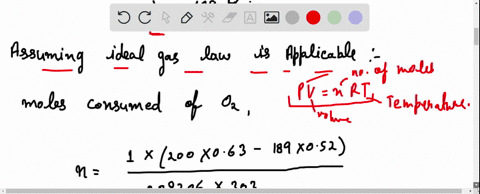 Assuming ideal gas law is Applicable :-
no. of moles
moles consumed of O2,
PV = nRT
Temperature.
volume
n = 1 × (200 × 0.63 - 189 × 0.52)